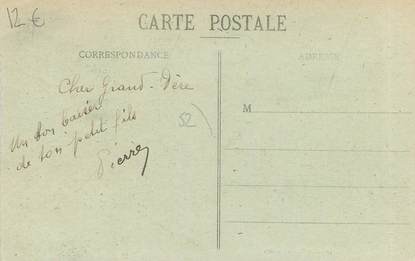 12 €
CARTE POSTALE
CORRESPONDANCE
ADRESSE
Cher Grand-Père
Un bon baiser
de ton petit fils
Pierre
52
M